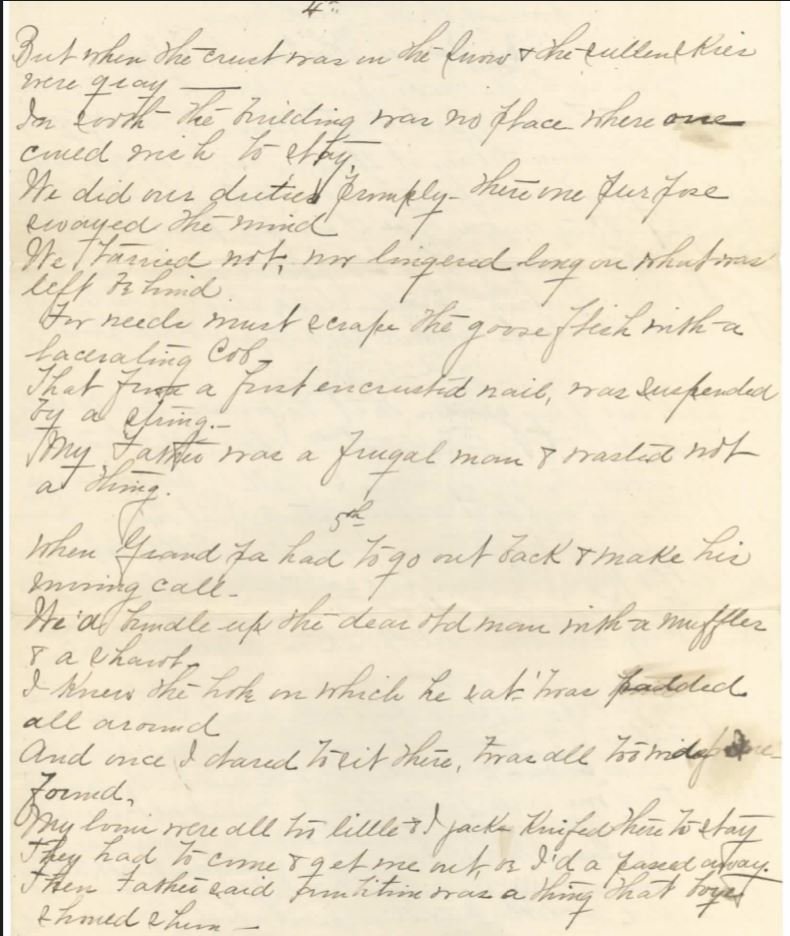 4th
But when the crust was on the snow & the sullen skies
were gray —
In sooth the building was no place where one
could wish to stay,
We did our duties promply - there one purpose
swayed the mind
We tarried not, nor lingered long on what was
left behind.
For needs must scrape the goose flesh with a
lacerating cob -
That from a frost encrusted nail, was suspended
by a string. -
My Father was a frugal man & wasted not
a thing.
5th
When Grand pa had to go out back & make his
morning call -
We'd bundle up the dear old man with a muffler
& a shawl -
I knew the hole on which he sat 'twas padded
all around
And once I dared to sit there, twas all too wide
found,
My loins were all too little & I jack knifed there to stay
They had to come & get me out, or I'd a passed away.
Then Father said ambition was a thing that boys
should shun —